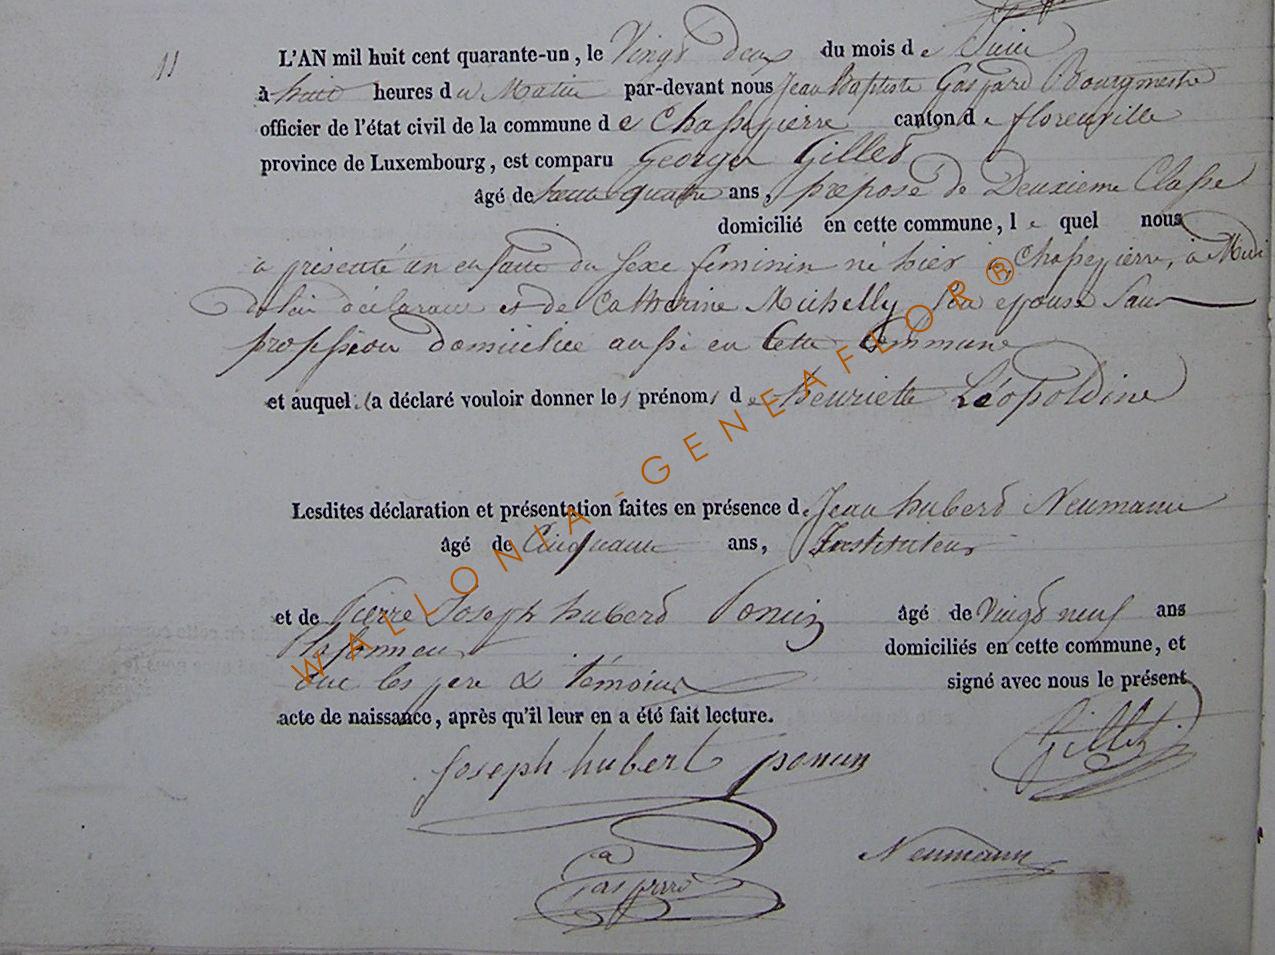 11 L'AN mil huit cent quarante-un, le Vingt deux du mois de Juin
à huit heures du Matin par-devant nous Jean Baptiste Gaspard Bourgmestre
officier de l'état civil de la commune de Chassepierre canton de florenville
province de Luxembourg, est comparu George Gilles
âgé de trente quatre ans, préposé de Deuxieme Classe
domicilié en cette commune, lequel nous
a présenté un enfant du sexe feminin né hier à Chassepierre, à Midi
de lui déclarant et de Catherine Michelly son epouse Sans
profession domiciliée aussi en Cette Commune
et auquel il a déclaré vouloir donner les prénoms de henriette Léopoldine
Lesdites déclaration et présentation faites en présence de Jean hubert Neumann
âgé de Cinquante ans, Instituteur
et de Pierre Joseph hubert Ponsin âgé de Vingt neuf ans
domiciliés en cette commune, et
ont les pere & témoins signé avec nous le présent
acte de naissance, après qu'il leur en a été fait lecture.
Joseph hubert ponsin Gilles
Neumann
Gaspard
WALLONIA-GENEAFLOR®